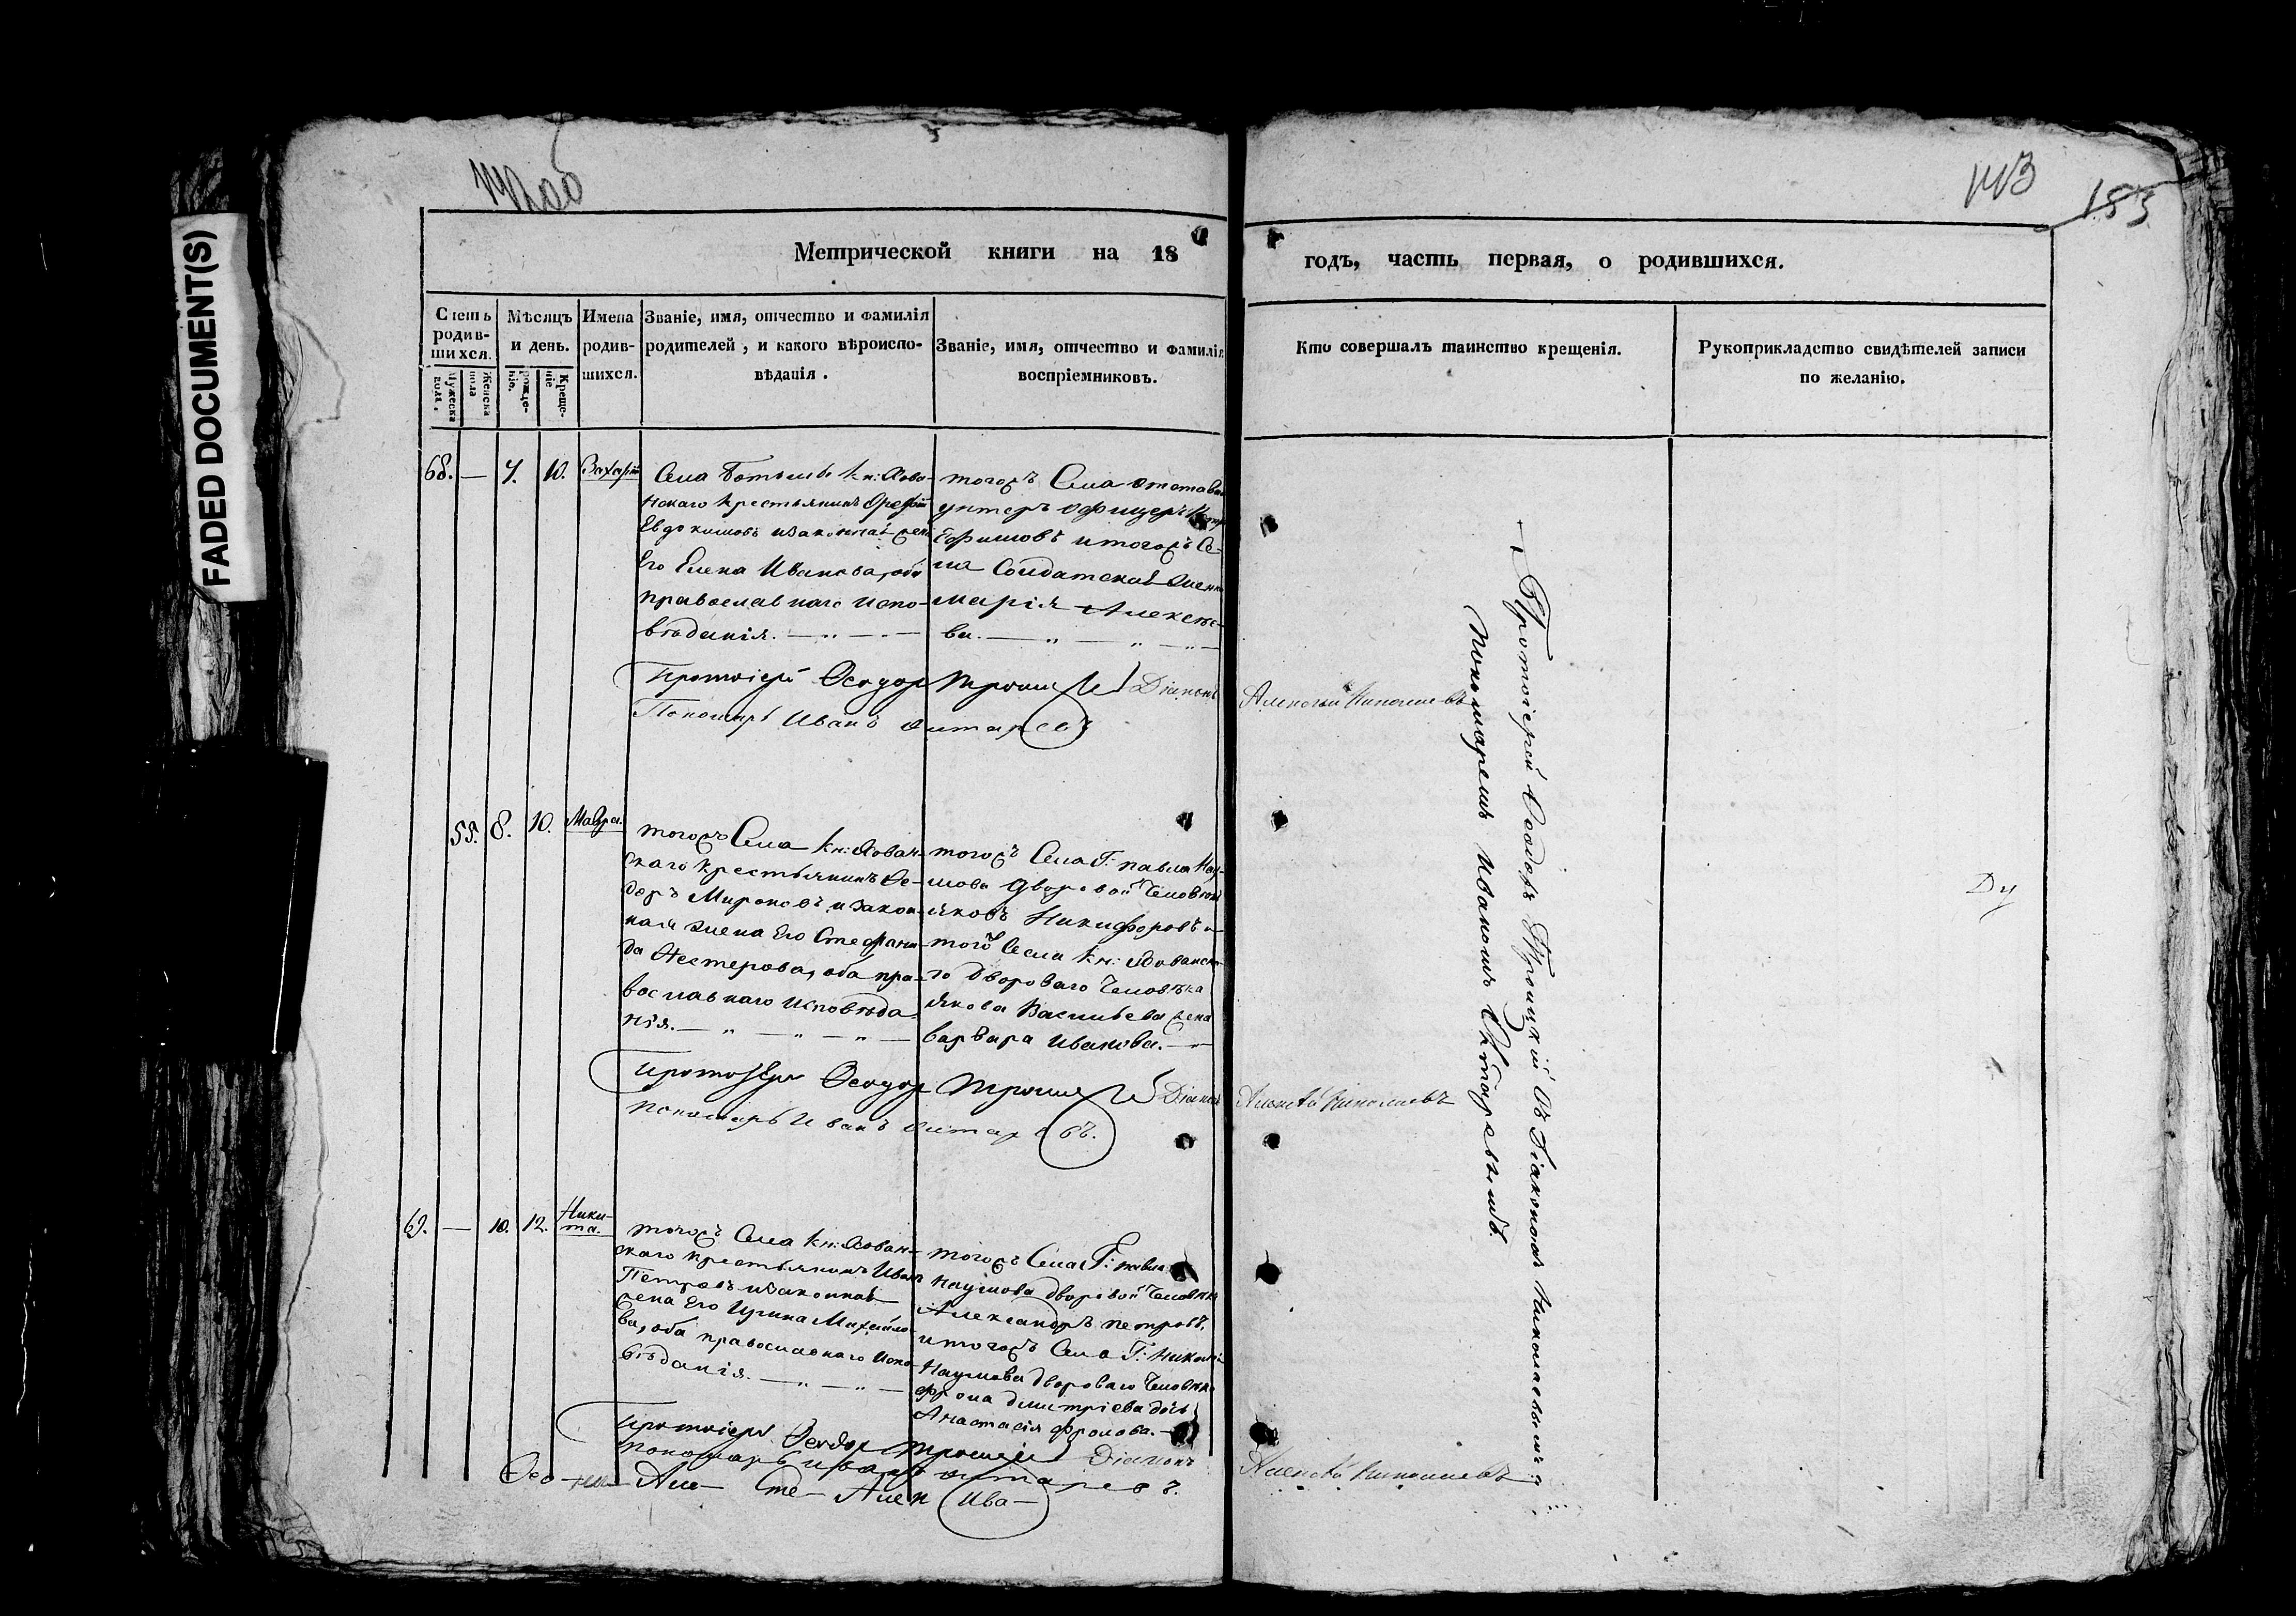 FADED DOCUMENT(S)
183
Метрической книги на 18
годъ, часть первая, о родившихся.
Счетъ родившихся.
Мужеска пола.
Женска пола
Мѣсяцъ и день.
рожденіе.
Крещеніе
Имена родившихся.
Званіе, имя, отчество и фамилія
родителей, и какого вѣроиспо-
вѣданія.
Званіе, имя, отчество и фамилія
воспріемниковъ.
Кто совершалъ таинство крещенія.
Рукоприкладство свидѣтелей записи
по желанію.
68. — 7. 10. Захарій
Села Ботьмы Кн: Хова-
нскаго крестьянинъ
Евдокимовъ и законная жена
Его Елена Иванова, оба
православнаго испо-
вѣданія.
тогожъ Села отставной
унтеръ офицеръ
Ефимовъ и тогожъ Се-
ла Солдатская жена
Марія Алексѣе-
ва.
Протоіерей Ѳеодор Троицкій Діаконъ
Алексѣй Николаевъ
Пономарь Иванъ
55. 8. 10. Мавра.
тогожъ Села Кн: Хован-
скаго крестьянинъ Ѳе-
доръ Мироновъ и закон-
ная жена Его Стефани-
да Нестерова, оба пра-
вославнаго исповѣда-
нія.
тогожъ Села Г: Павла Нау-
мова дворовой Человѣкъ
Яковъ Никифоровъ и
того Села Кн: Хованска-
го двороваго Человѣка
Якова Васильева жена
Варвара Иванова.
Протоіерей Ѳеодор Троицкій Діаконъ
Алексѣй Николаевъ
Пономарь Иванъ
69. — 10. 12. Ники-
та.
тогожъ Села Кн: Хован-
скаго крестьянинъ Иванъ
Петровъ и законная
жена Его Ирина Михайло-
ва, оба православнаго испо-
вѣданія.
тогожъ Села Г: Павла
Наумова дворовой Человѣкъ
Александръ Петровъ,
и тогожъ Села Г: Николая
Наумова двороваго Человѣка
Фрола Дмитріева дочь
Анастасія Фролова.
Протоіерей Ѳеодор Троицкій Діаконъ
Алексѣй Николаевъ
Пономарь Иванъ
Але— Сте— Алек Ива—
Протоіерей Ѳеодоръ Троицкій съ Діакономъ Николаевымъ и
Пономаремъ Иваномъ